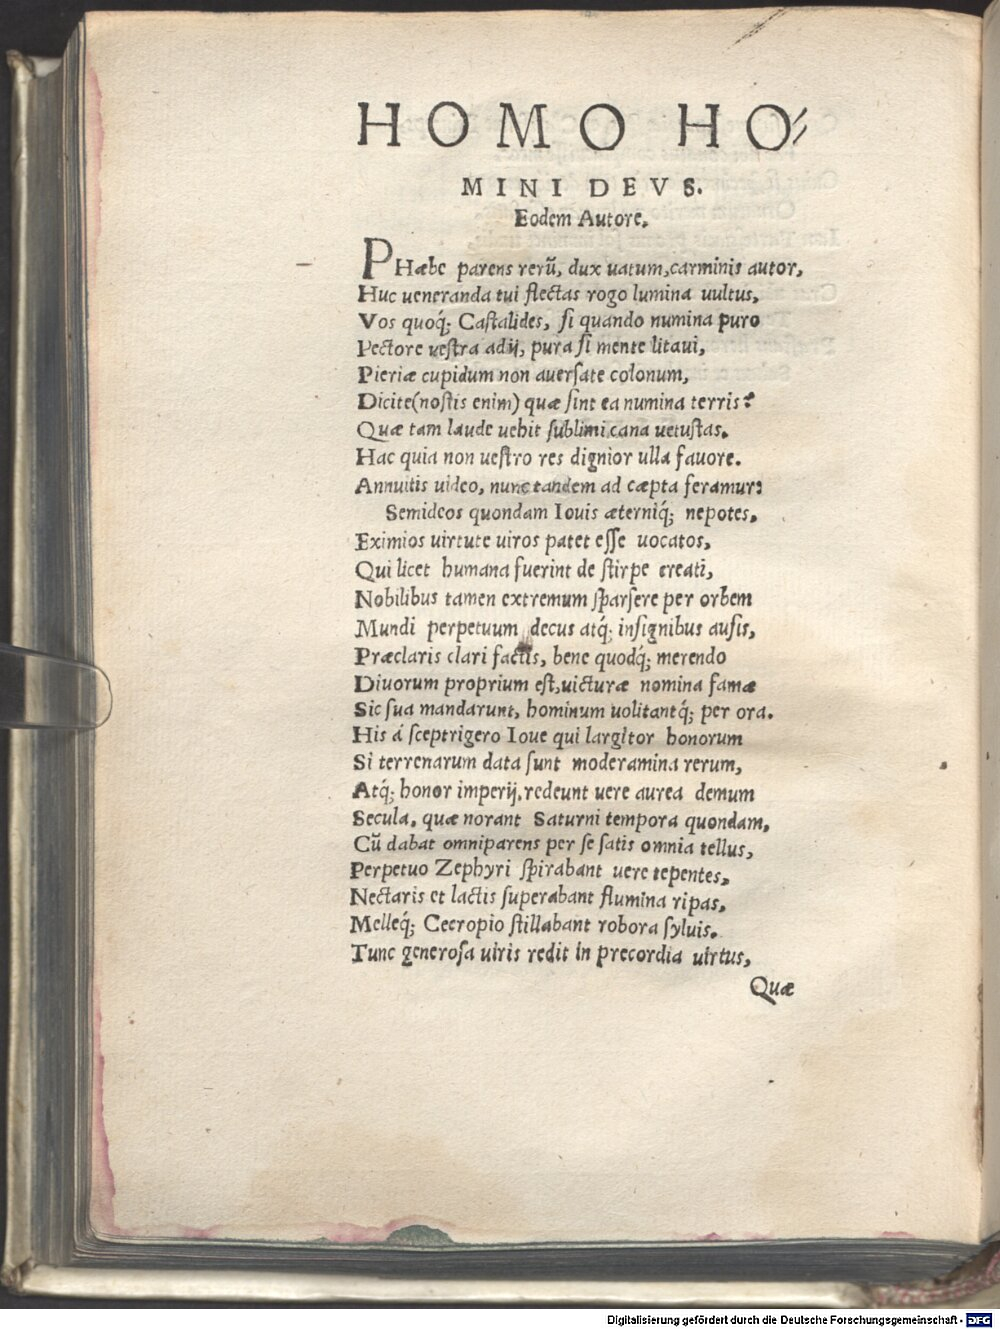 HOMO HO⸗
MINI DEVS.
Eodem Autore.
PHæbe parens rerũ, dux uatum, carminis autor,
Huc ueneranda tui flectas rogo lumina uultus,
Vos quoq́; Castalides, si quando numina puro
Pectore uestra adij, pura si mente litaui,
Pieriæ cupidum non auersate colonum,
Dicite(nostis enim) quæ sint ea numina terris?
Quæ tam laude uehit sublimi cana uetustas.
Hac quia non uestro res dignior ulla fauore.
Annuitis uideo, nunc tandem ad cæpta feramur:
Semideos quondam Iouis æterniq́; nepotes,
Eximios uirtute uiros patet esse uocatos,
Qui licet humana fuerint de stirpe creati,
Nobilibus tamen extremum sparsere per orbem
Mundi perpetuum decus atq́; insignibus ausis,
Præclaris clari factis, bene quodq́; merendo
Diuorum proprium est, uicturæ nomina famæ
Sic sua mandarunt, hominum uolitantq́; per ora.
His á sceptrigero Ioue qui largitor honorum
Si terrenarum data sunt moderamina rerum,
Atq́; honor imperij, redeunt uere aurea demum
Secula, quæ norant Saturni tempora quondam,
Cũ dabat omniparens per se satis omnia tellus,
Perpetuo Zephyri spirabant uere tepentes,
Nectaris et lactis superabant flumina ripas,
Melleq́; Cecropio stillabant robora syluis.
Tunc generosa uiris redit in precordia uirtus,
Quæ
Digitalisierung gefördert durch die Deutsche Forschungsgemeinschaft - DFG